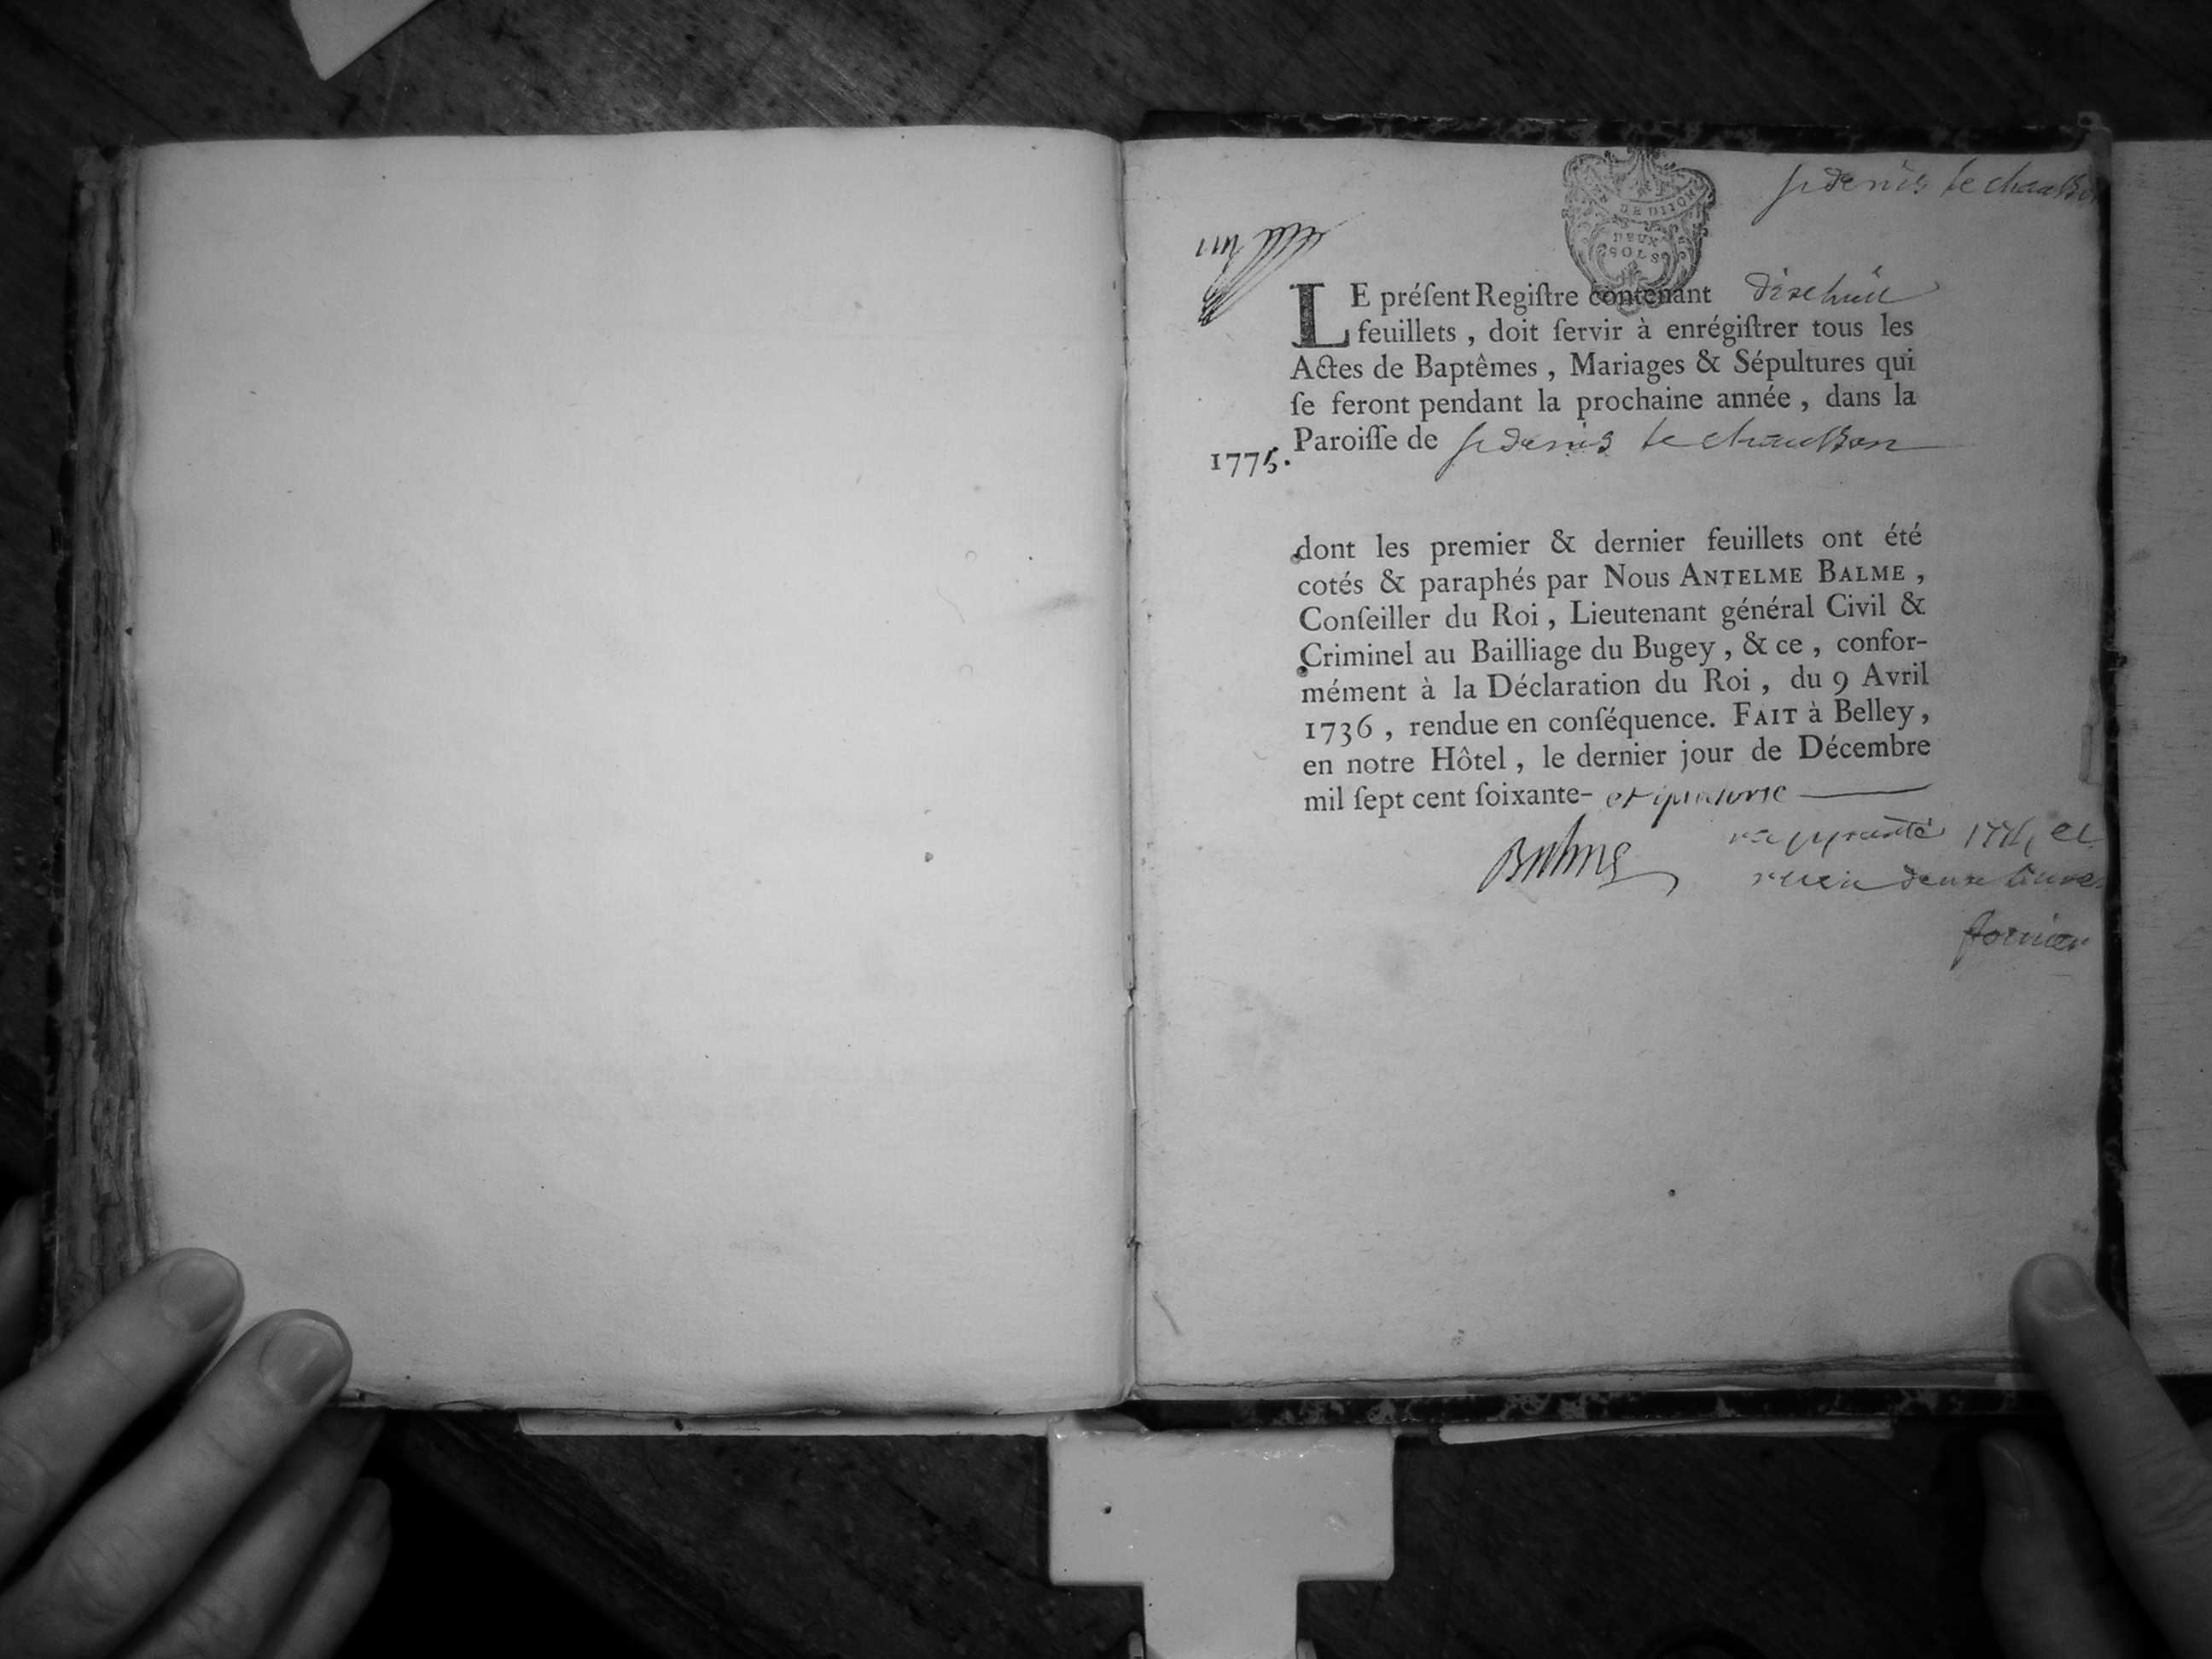 st denis le chausson
DE DIJON
DEUX
SOLS
un
LE préſent Regiſtre contenant dixehuit
feuillets, doit ſervir à enrégiſtrer tous les
Actes de Baptêmes, Mariages & Sépultures qui
ſe feront pendant la prochaine année, dans la
Paroiſſe de st denis le chausson
1775.
dont les premier & dernier feuillets ont été
cotés & paraphés par Nous ANTELME BALME,
Conſeiller du Roi, Lieutenant général Civil &
Criminel au Bailliage du Bugey, & ce, confor-
mément à la Déclaration du Roi, du 9 Avril
1736, rendue en conſéquence. FAIT à Belley,
en notre Hôtel, le dernier jour de Décembre
mil ſept cent ſoixante- et quatorze
Balme
et
deux livres